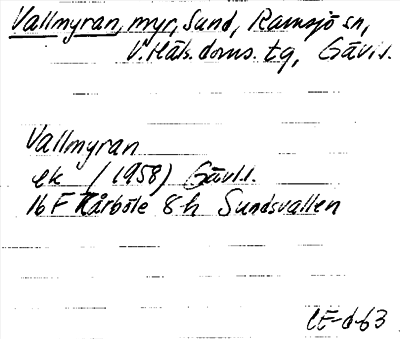 Vallmyran, myr, Sund, Ramsjö sn,
V. Häls. doms. tg, Gävl.
Vallmyran
ek (1958) Gävl.l.
16 F Kårböle 8h Sundsvallen
CE-d-63